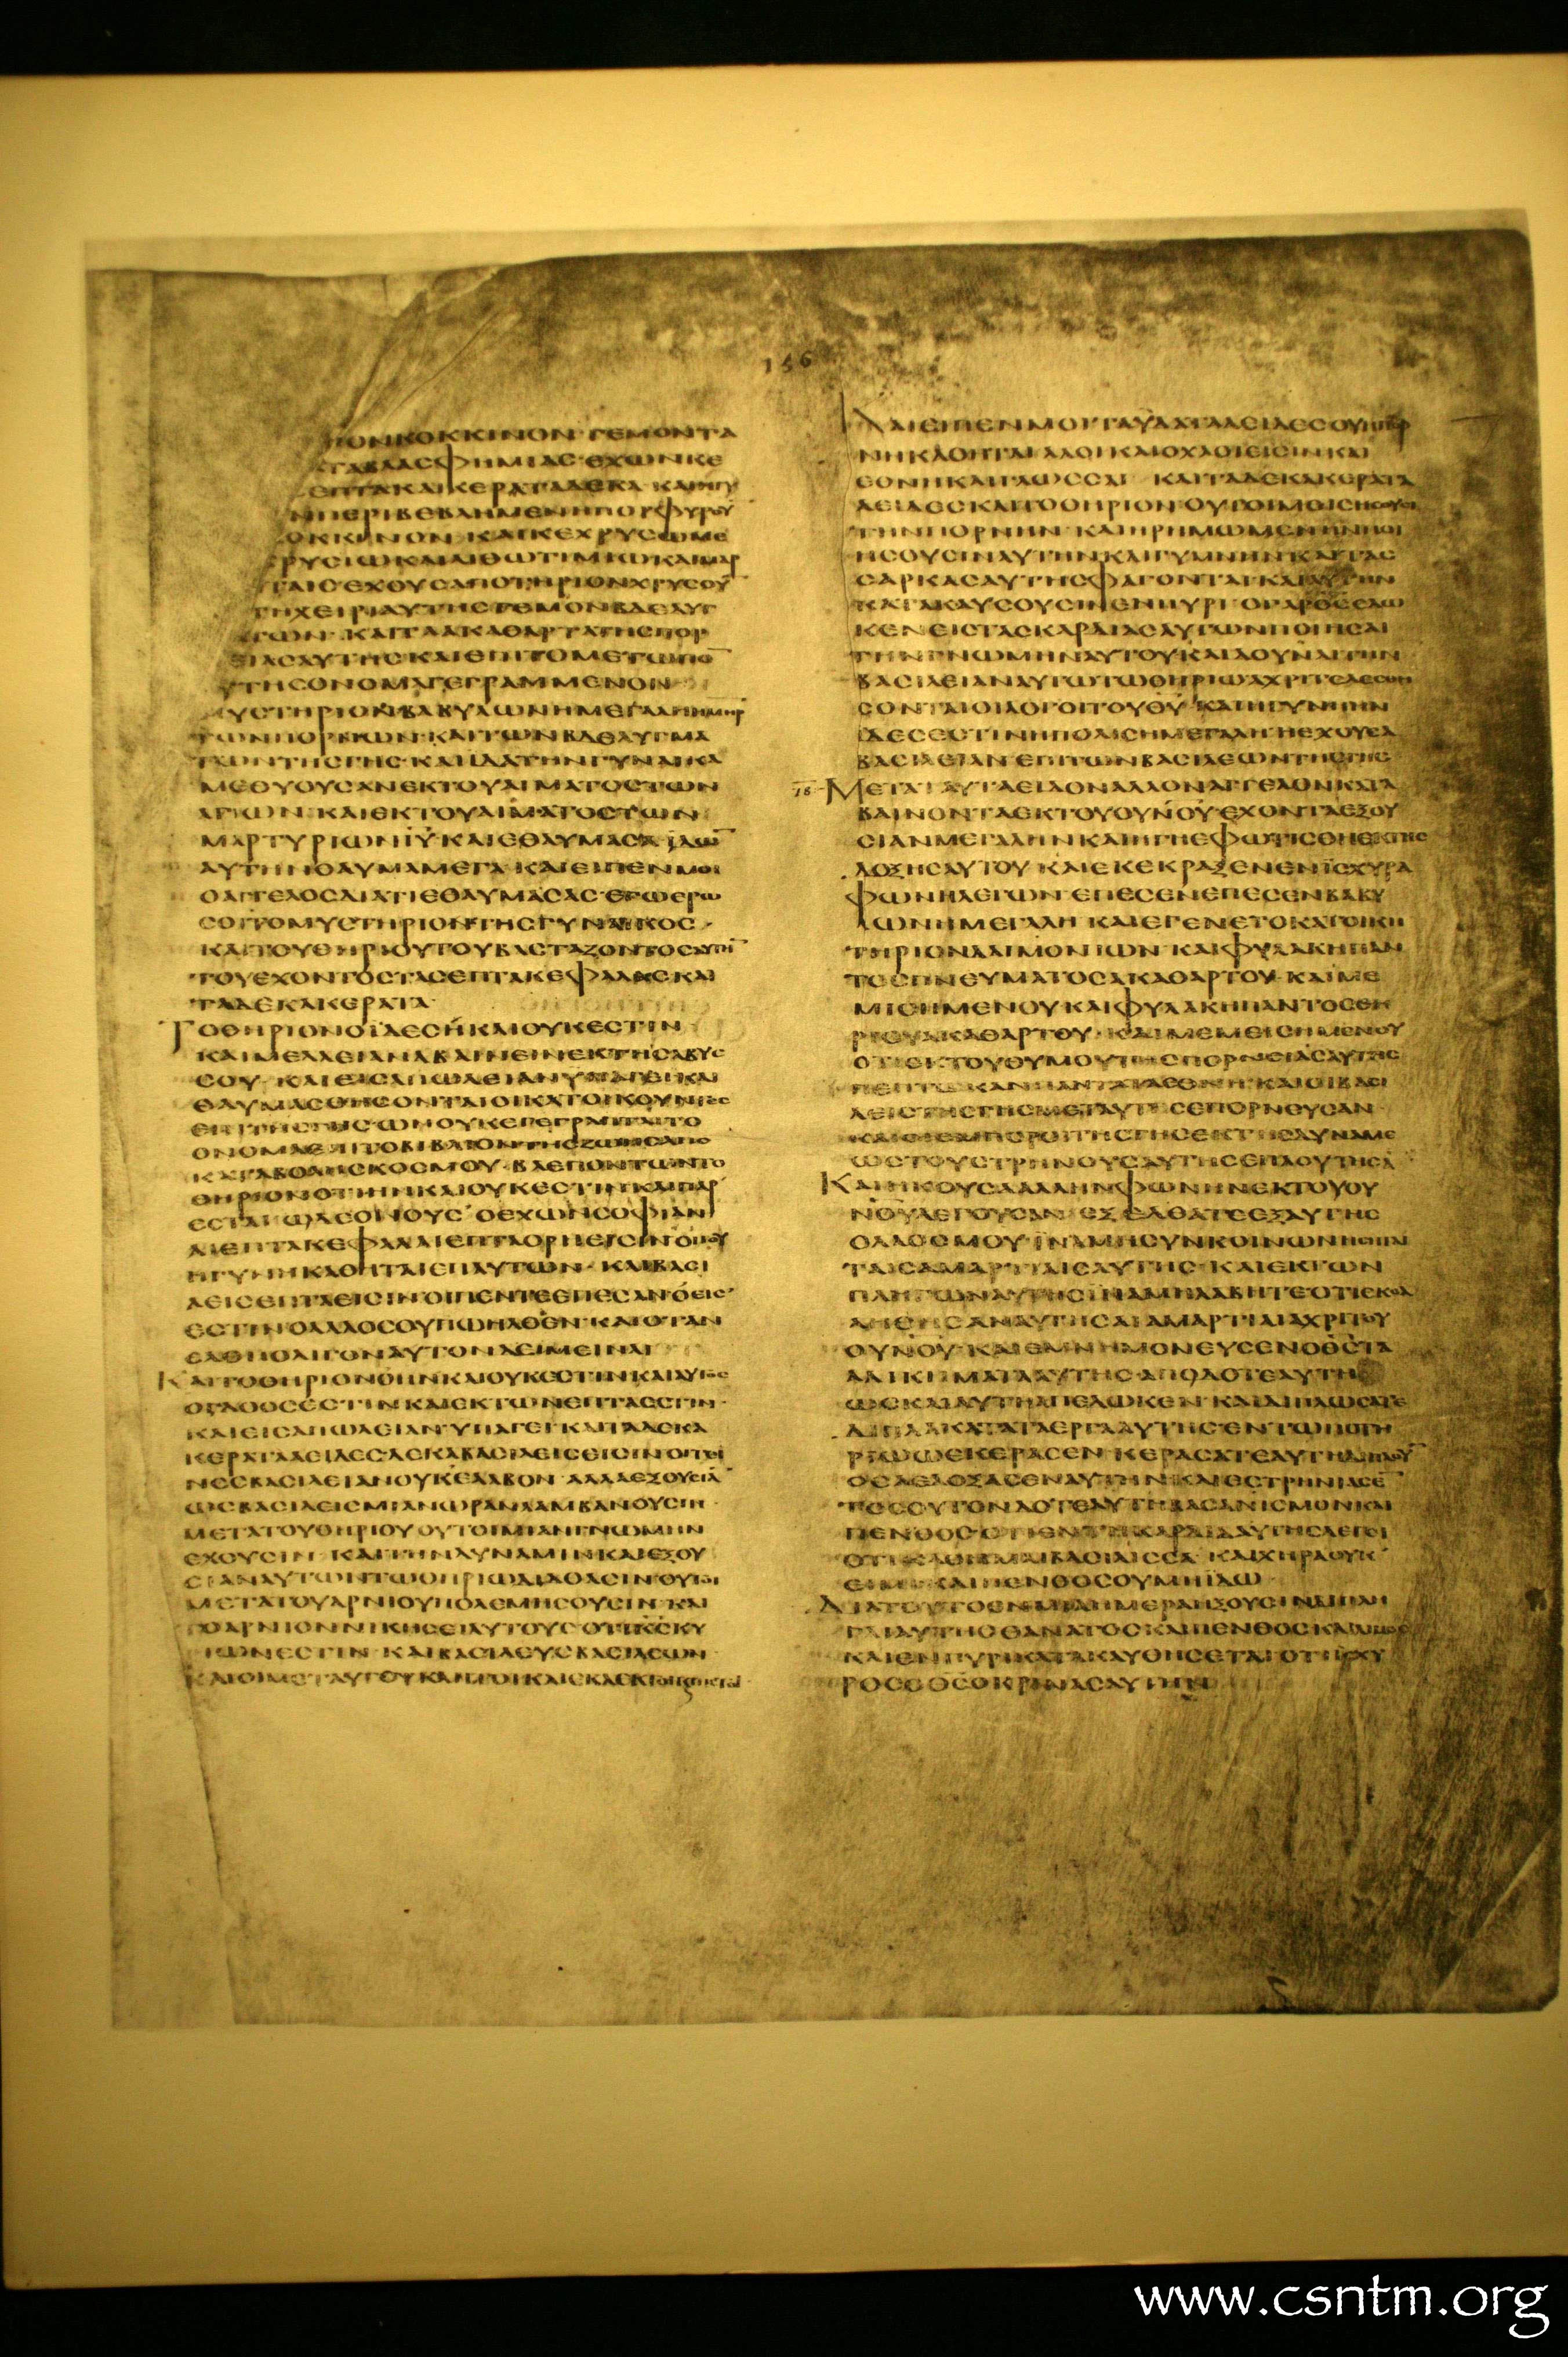 156
ΡΙΟΝΚΟΚΚΙΝΟΝ·ΓΕΜΟΝΤΑ
ΒΛΑΣΦΗΜΙΑΣ·ΕΧΩΝΚΕ
ΕΠΤΑΚΑΙΚΕΡΑΤΑΔΕΚΑ·ΚΑΙΗΓΥ
ΝΠΕΡΙΒΕΒΛΗΜΕΝΗΠΟΡΦΥΡΟΥ
ΟΚΚΙΝΟΝ·ΚΑΙΚΕΧΡΥΣΩΜΕ
ΡΥΣΙΩΚΑΙΛΙΘΩΤΙΜΙΩΚΑΙΜΑΡ
ΤΑΙΣ·ΕΧΟΥΣΑΠΟΤΗΡΙΟΝΧΡΥΣΟΥ
ΤΗΧΕΙΡΙΑΥΤΗΣΓΕΜΟΝΒΔΕΛΥΓ
ΤΩΝ·ΚΑΙΤΑΑΚΑΘΑΡΤΑΤΗΣΠΟΡ
ΙΑΣΑΥΤΗΣΚΑΙΕΠΙΤΟΜΕΤΩΠΟ̅
ΥΤΗΣΟΝΟΜΑΓΕΓΡΑΜΜΕΝΟΝ
ΜΥΣΤΗΡΙΟΝΒΑΒΥΛΩΝΗΜΕΓΑΛΗΗΜΗΡ
ΤΩΝΠΟΡΝΩΝ·ΚΑΙΤΩΝΒΔΕΛΥΓΜΑ
ΤΩΝΤΗΣΓΗΣ·ΚΑΙΙΔΑΤΗΝΓΥΝΑΙΚΑ
ΜΕΘΥΟΥΣΑΝΕΚΤΟΥΑΙΜΑΤΟΣΤΩΝ
ΑΓΙΩΝ·ΚΑΙΕΚΤΟΥΑΙΜΑΤΟΣΤΩΝ
ΜΑΡΤΥΡΙΩΝΙ̅Υ̅·ΚΑΙΕΘΑΥΜΑΣΑΙΔΩ̅
ΑΥΤΗΝΘΑΥΜΑΜΕΓΑ·ΚΑΙΕΙΠΕΝΜΟΙ
ΟΑΓΓΕΛΟΣΔΙΑΤΙΕΘΑΥΜΑΣΑΣ·ΕΓΩΕΡΩ
ΣΟΙΤΟΜΥΣΤΗΡΙΟΝΤΗΣΓΥΝΑΙΚΟΣ·
ΚΑΙΤΟΥΘΗΡΙΟΥΤΟΥΒΑΣΤΑΖΟΝΤΟΣΑΥΤΗ̅
ΤΟΥΕΧΟΝΤΟΣΤΑΣΕΠΤΑΚΕΦΑΛΑΣΚΑΙ
ΤΑΔΕΚΑΚΕΡΑΤΑ
ΤΟΘΗΡΙΟΝΟΪΔΕΣΗΝΚΑΙΟΥΚΕΣΤΙΝ
ΚΑΙΜΕΛΛΕΙΑΝΑΒΑΙΝΕΙΝΕΚΤΗΣΑΒΥΣ
ΣΟΥ·ΚΑΙΕΙΣΑΠΩΛΕΙΑΝΥΠΑΓΕΙ·ΚΑΙ
ΘΑΥΜΑΣΘΗΣΟΝΤΑΙΟΙΚΑΤΟΙΚΟΥΝΤΕΣ
ΕΠΙΤΗΣΓΗΣΩΝΟΥΚΕΓΕΓΡΑΠΤΑΙΤΟ
ΟΝΟΜΑΕΠΙΤΟΒΙΒΛΙΟΝΤΗΣΖΩΗΣΑΠΟ
ΚΑΤΑΒΟΛΗΣΚΟΣΜΟΥ·ΒΛΕΠΟΝΤΩΝΤΟ
ΘΗΡΙΟΝΟΤΙΗΝΚΑΙΟΥΚΕΣΤΙΝΚΑΙΠΑΡ
ΕΣΤΑΙ·ΩΔΕΟΝΟΥΣ·ΟΕΧΩΝΣΟΦΙΑΝ
ΑΙΕΠΤΑΚΕΦΑΛΑΙΕΠΤΑΟΡΗΕΙΣΙΝΟΠΟΥ
ΗΓΥΝΗΚΑΘΗΤΑΙΕΠΑΥΤΩΝ·ΚΑΙΒΑΣΙ
ΛΕΙΣΕΠΤΑΕΙΣΙΝ·ΟΙΠΕΝΤΕΕΠΕΣΑΝΟΕΙΣ
ΕΣΤΙΝΟΑΛΛΟΣΟΥΠΩΗΛΘΕΝ·ΚΑΙΟΤΑΝ
ΕΛΘΗΟΛΙΓΟΝΑΥΤΟΝΔΕΙΜΕΙΝΑΙ
ΚΑΙΤΟΘΗΡΙΟΝΟΗΝΚΑΙΟΥΚΕΣΤΙΝΚΑΙΑΥΤΟΣ
ΟΓΔΟΟΣΕΣΤΙΝΚΑΙΕΚΤΩΝΕΠΤΑΕΣΤΙΝ·
ΚΑΙΕΙΣΑΠΩΛΕΙΑΝΥΠΑΓΕΙ·ΚΑΙΤΑΔΕΚΑ
ΚΕΡΑΤΑΑΕΙΔΕΣΔΕΚΑΒΑΣΙΛΕΙΣΕΙΣΙΝΟΙΤΙ
ΝΕΣΒΑΣΙΛΕΙΑΝΟΥΚΕΛΑΒΟΝ·ΑΛΛΑΕΞΟΥΣΙΑ̅
ΩΣΒΑΣΙΛΕΙΣΜΙΑΝΩΡΑΝΛΑΜΒΑΝΟΥΣΙΝ·
ΜΕΤΑΤΟΥΘΗΡΙΟΥΟΥΤΟΙΜΙΑΝΓΝΩΜΗΝ
ΕΧΟΥΣΙΝ·ΚΑΙΤΗΝΔΥΝΑΜΙΝΚΑΙΕΞΟΥ
ΣΙΑΝΑΥΤΩΝΤΩΘΗΡΙΩΔΙΔΟΑΣΙΝ·ΟΥΤΟΙ
ΜΕΤΑΤΟΥΑΡΝΙΟΥΠΟΛΕΜΗΣΟΥΣΙΝ·ΚΑΙ
ΤΟΑΡΝΙΟΝΝΙΚΗΣΕΙΑΥΤΟΥΣΟΤΙΚ̅Σ̅ΚΥ
ΡΙΩΝΕΣΤΙΝ·ΚΑΙΒΑΣΙΛΕΥΣΒΑΣΙΛΕΩΝ
ΚΑΙΟΙΜΕΤΑΥΤΟΥΚΛΗΤΟΙΚΑΙΕΚΛΕΚΤΟΙ
ΚΑΙΕΙΠΕΝΜΟΙΤΑΥΔΑΤΑΑΕΙΔΕΣΟΥΗΠΟΡ
ΝΗΚΑΘΗΤΑΙ·ΛΑΟΙΚΑΙΟΧΛΟΙΕΙΣΙΝΚΑΙ
ΕΘΝΗΚΑΙΓΛΩΣΣΑΙ·ΚΑΙΤΑΔΕΚΑΚΕΡΑΤΑ
ΑΕΙΔΕΣΚΑΙΤΟΘΗΡΙΟΝ·ΟΥΤΟΙΜΙΣΗΣΟΥΣΙ
ΤΗΝΠΟΡΝΗΝ·ΚΑΙΗΡΗΜΩΜΕΝΗΝΠΟΙ
ΗΣΟΥΣΙΝΑΥΤΗΝ·ΚΑΙΓΥΜΝΗΝ·ΚΑΙΤΑΣ
ΣΑΡΚΑΣΑΥΤΗΣΦΑΓΟΝΤΑΙ·ΚΑΙΑΥΤΗΝ
ΚΑΤΑΚΑΥΣΟΥΣΙΝΕΝΠΥΡΙ·ΟΓΑΡΘ̅Σ̅ΕΔΩ
ΚΕΝΕΙΣΤΑΣΚΑΡΔΙΑΣΑΥΤΩΝΠΟΙΗΣΑΙ
ΤΗΝΓΝΩΜΗΝΑΥΤΟΥΚΑΙΔΟΥΝΑΙΤΗΝ
ΒΑΣΙΛΕΙΑΝΑΥΤΩΤΩΘΗΡΙΩΑΧΡΙΤΕΛΕΣΘΗ
ΣΟΝΤΑΙΟΙΛΟΓΟΙΤΟΥΘ̅Υ̅·ΚΑΙΗΓΥΝΗΗΝ
ΙΔΕΣΕΣΤΙΝΗΠΟΛΙΣΗΜΕΓΑΛΗΗΕΧΟΥΣΑ
ΒΑΣΙΛΕΙΑΝΕΠΙΤΩΝΒΑΣΙΛΕΩΝΤΗΣΓΗΣ
18 ΜΕΤΑΤΑΥΤΑΕΙΔΟΝΑΛΛΟΝΑΓΓΕΛΟΝΚΑΤΑ
ΒΑΙΝΟΝΤΑΕΚΤΟΥΟΥΝ̅Ο̅Υ̅·ΕΧΟΝΤΑΕΞΟΥ
ΣΙΑΝΜΕΓΑΛΗΝ·ΚΑΙΗΓΗΕΦΩΤΙΣΘΗΕΚΤΗΣ
ΔΟΞΗΣΑΥΤΟΥ·ΚΑΙΕΚΕΚΡΑΞΕΝΕΝΪΣΧΥΡΑ
ΦΩΝΗΛΕΓΩΝ·ΕΠΕΣΕΝΕΠΕΣΕΝΒΑΒΥ
ΛΩΝΗΜΕΓΑΛΗ·ΚΑΙΕΓΕΝΕΤΟΚΑΤΟΙΚΗ
ΤΗΡΙΟΝΔΑΙΜΟΝΙΩΝ·ΚΑΙΦΥΛΑΚΗΠΑΝ
ΤΟΣΠΝΕΥΜΑΤΟΣΑΚΑΘΑΡΤΟΥ·ΚΑΙΜΕ
ΜΙΣΗΜΕΝΟΥΚΑΙΦΥΛΑΚΗΠΑΝΤΟΣΘΗ
ΡΙΟΥΑΚΑΘΑΡΤΟΥ·ΚΑΙΜΕΜΕΙΣΗΜΕΝΟΥ
ΟΤΙΕΚΤΟΥΘΥΜΟΥΤΗΣΠΟΡΝΕΙΑΣΑΥΤΗΣ
ΠΕΠΤΩΚΑΝΠΑΝΤΑΤΑΕΘΝΗ·ΚΑΙΟΙΒΑΣΙ
ΛΕΙΣΤΗΣΓΗΣΜΕΤΑΥΤΗΣΕΠΟΡΝΕΥΣΑΝ·
ΚΑΙΟΙΕΜΠΟΡΟΙΤΗΣΓΗΣΕΚΤΗΣΔΥΝΑΜΕ
ΩΣΤΟΥΣΤΡΗΝΟΥΣΑΥΤΗΣΕΠΛΟΥΤΗΣΑ̅
ΚΑΙΗΚΟΥΣΑΑΛΛΗΝΦΩΝΗΝΕΚΤΟΥΟΥ
Ν̅Ο̅Υ̅ΛΕΓΟΥΣΑΝ·ΕΞΕΛΘΑΤΕΕΞΑΥΤΗΣ
ΟΛΑΟΣΜΟΥ·ΪΝΑΜΗΣΥΝΚΟΙΝΩΝΗΣΗΤΑΙ
ΤΑΙΣΑΜΑΡΤΙΑΙΣΑΥΤΗΣ·ΚΑΙΕΚΤΩΝ
ΠΛΗΓΩΝΑΥΤΗΣΪΝΑΜΗΛΑΒΗΤΕΟΤΙΕΚΟΛ
ΛΗΘΗΣΑΝΑΥΤΗΣΑΙΑΜΑΡΤΙΑΙΑΧΡΙΤΟΥ
ΟΥΝ̅Ο̅Υ̅·ΚΑΙΕΜΝΗΜΟΝΕΥΣΕΝΟΘ̅Σ̅ΤΑ
ΑΔΙΚΗΜΑΤΑΑΥΤΗΣ·ΑΠΟΔΟΤΕΑΥΤΗ
ΩΣΚΑΙΑΥΤΗΑΠΕΔΩΚΕΝ·ΚΑΙΔΙΠΛΩΣΑΤΕ
ΔΙΠΛΑΚΑΤΑΤΑΕΡΓΑΑΥΤΗΣ·ΕΝΤΩΠΟΤΗ
ΡΙΩΩΕΚΕΡΑΣΕΝ·ΚΕΡΑΣΑΤΕΑΥΤΗΔΙΠΛΟΥ̅
ΟΣΑΕΔΟΞΑΣΕΝΑΥΤΗΝ·ΚΑΙΕΣΤΡΗΝΙΑΣΕ̅
ΤΟΣΟΥΤΟΝΔΟΤΕΑΥΤΗΒΑΣΑΝΙΣΜΟΝΚΑΙ
ΠΕΝΘΟΣ·ΟΤΙΕΝΤΗΚΑΡΔΙΑΑΥΤΗΣΛΕΓΕΙ
ΟΤΙΚΑΘΗΜΑΙΒΑΣΙΛΙΣΣΑ·ΚΑΙΧΗΡΑΟΥΚ
ΕΙΜΙ·ΚΑΙΠΕΝΘΟΣΟΥΜΗΪΔΩ
ΔΙΑΤΟΥΤΟΕΝΜΙΑΗΜΕΡΑΗΞΟΥΣΙΝΑΙΠΛΗ
ΓΑΙΑΥΤΗΣΘΑΝΑΤΟΣ·ΚΑΙΠΕΝΘΟΣ·ΚΑΙΛΙΜΟΣ
ΚΑΙΕΝΠΥΡΙΚΑΤΑΚΑΥΘΗΣΕΤΑΙ·ΟΤΙΙΣΧΥ
ΡΟΣΟΘ̅Σ̅ΟΚΡΙΝΑΣΑΥΤΗΝ
www.csntm.org